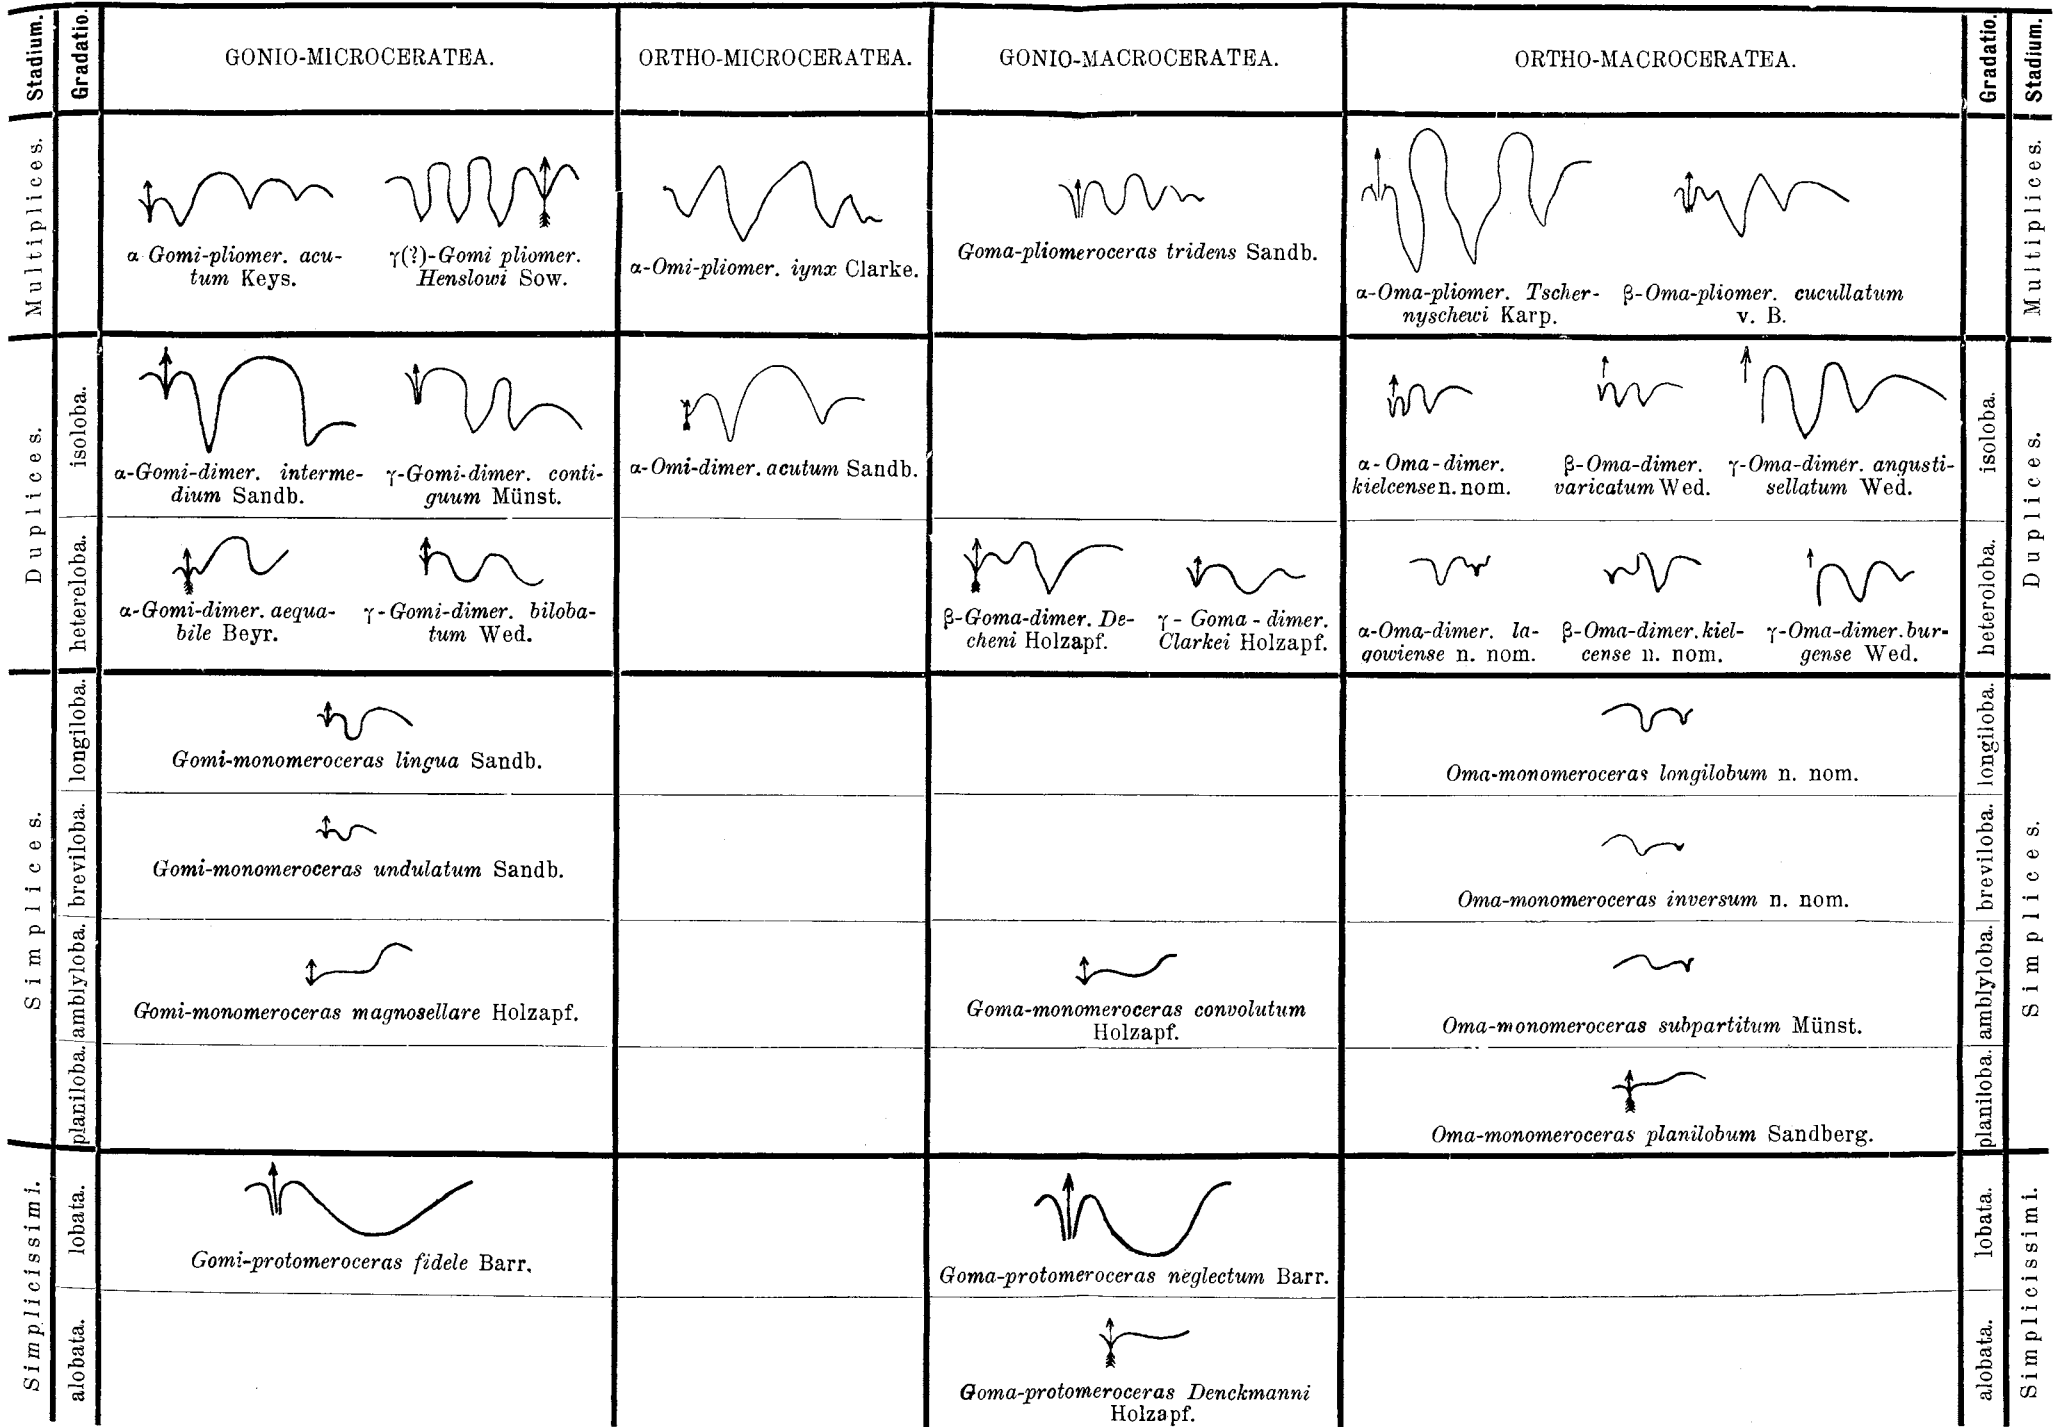 Stadium.
Gradatio.
GONIO-MICROCERATEA.
ORTHO-MICROCERATEA.
GONIO-MACROCERATEA.
ORTHO-MACROCERATEA.
Gradatio.
Stadium.
Multiplices.
α Gomi-pliomer. acu-
tum Keys.
γ(?)-Gomi pliomer.
Henslowi Sow.
α-Omi-pliomer. iynx Clarke.
Goma-pliomeroceras tridens Sandb.
α-Oma-pliomer. Tscher-
nyschewi Karp.
β-Oma-pliomer. cucullatum
v. B.
Multiplices.
Duplices.
isoloba.
α-Gomi-dimer. interme-
dium Sandb.
γ-Gomi-dimer. conti-
guum Münst.
α-Omi-dimer. acutum Sandb.
α-Oma-dimer.
kielcense n. nom.
β-Oma-dimer.
varicatum Wed.
γ-Oma-dimer. angusti-
sellatum Wed.
isoloba.
Duplices.
hetereloba.
α-Gomi-dimer. aequa-
bile Beyr.
γ-Gomi-dimer. biloba-
tum Wed.
β-Goma-dimer. De-
cheni Holzapf.
γ-Goma-dimer.
Clarkei Holzapf.
α-Oma-dimer. la-
gowiense n. nom.
β-Oma-dimer. kiel-
cense n. nom.
γ-Oma-dimer. bur-
gense Wed.
heteroloba.
Simplices.
longiloba.
Gomi-monomeroceras lingua Sandb.
Oma-monomeroceras longilobum n. nom.
longiloba.
Simplices.
breviloba.
Gomi-monomeroceras undulatum Sandb.
Oma-monomeroceras inversum n. nom.
breviloba.
amblyloba.
Gomi-monomeroceras magnosellare Holzapf.
Goma-monomeroceras convolutum
Holzapf.
Oma-monomeroceras subpartitum Münst.
amblyloba.
planiloba.
Oma-monomeroceras planilobum Sandberg.
planiloba.
Simplicissimi.
lobata.
Gomi-protomeroceras fidele Barr.
Goma-protomeroceras neglectum Barr.
lobata.
Simplicissimi.
alobata.
Goma-protomeroceras Denckmanni
Holzapf.
alobata.